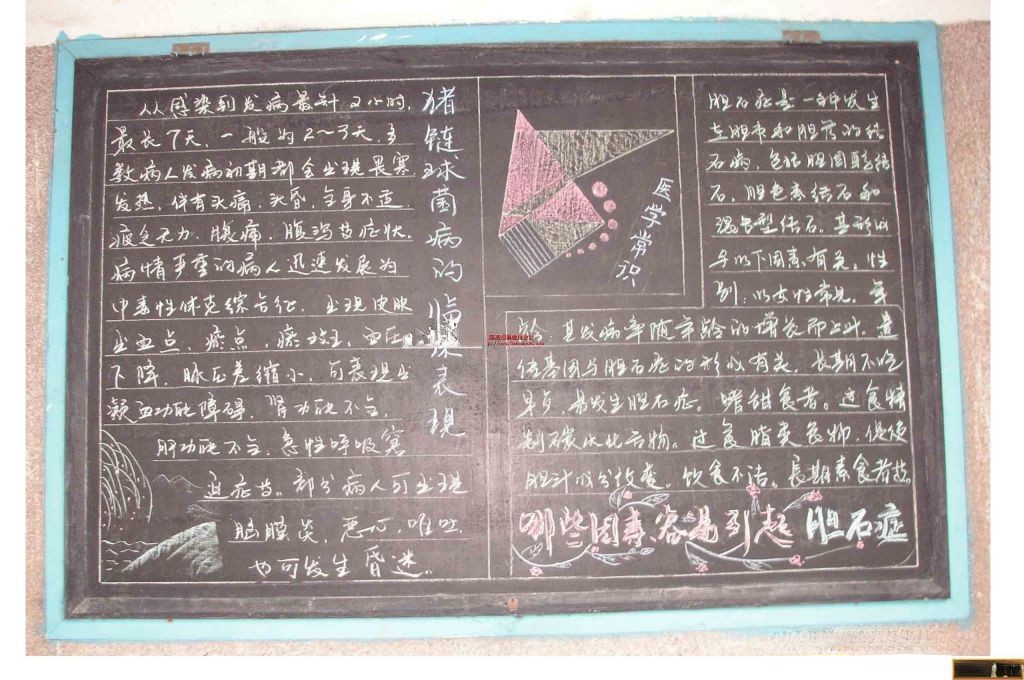 猪链球菌病的临床表现
从感染到发病最短2小时,
最长7天,一般为2~3天,多
数病人发病初期都会出现畏寒
发热,伴有头痛,头昏,全身不适,
疲乏无力,腹痛,腹泻等症状。
病情严重的病人迅速发展为
中毒性休克综合征,出现皮肤
出血点,瘀点,瘀斑,血压
下降,脉压差缩小,可表现出
凝血功能障碍,肾功能不全,
肝功能不全,急性呼吸窘
迫症等。部分病人可出现
脑膜炎,恶心,呕吐,
也可发生昏迷。
医学常识
胆石症是一种发生
在胆囊和胆管的结
石病,包括胆固醇结
石,胆色素结石和
混合型结石,其形成
与以下因素有关:性
别:以女性常见,年
龄:其发病率随年龄的增长而上升,遗
传基因与胆石症的形成有关,长期不吃
早点,易发生胆石症。嗜甜食者。过食精
制碳水化合物。过食脂类食物,促使
胆汁成分改变。饮食不洁。长期素食者等。
哪些因素容易引起胆石症